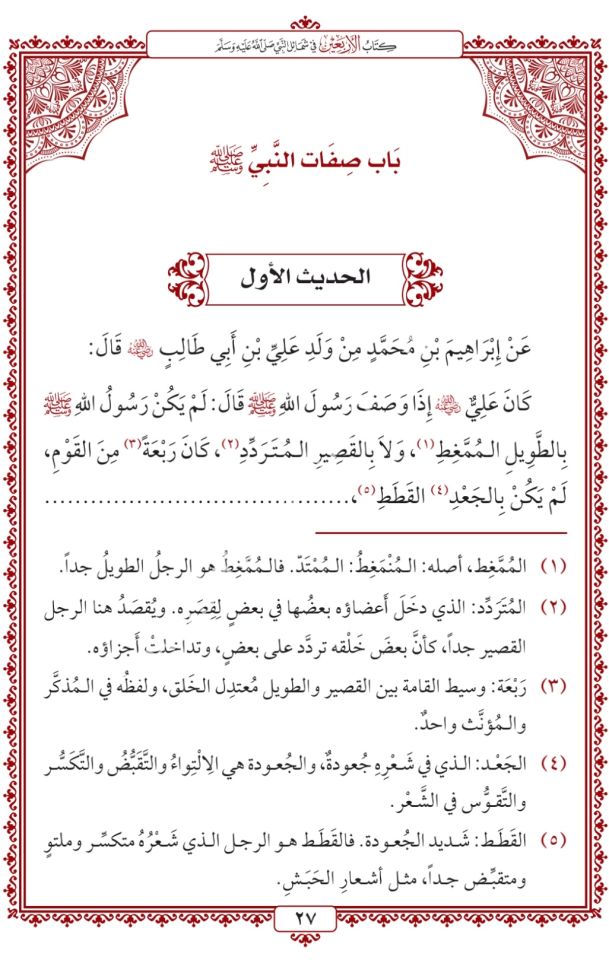 كتاب الأربعين في شمائل النبي صلى الله عليه وسلم
بَاب صِفَات النَّبِيِّ ﷺ
الحديث الأول
عَنْ إِبْرَاهِيمَ بْنِ مُحَمَّدٍ مِنْ وَلَدِ عَلِيِّ بْنِ أَبِي طَالِبٍ رضي الله عنه قَالَ:
كَانَ عَلِيٌّ رضي الله عنه إِذَا وَصَفَ رَسُولَ اللهِ ﷺ قَالَ: لَمْ يَكُنْ رَسُولُ اللهِ ﷺ
بِالطَّوِيلِ الـمُمَّغِطِ(١)، وَلاَ بِالقَصِيرِ الـمُتَرَدِّدِ(٢)، كَانَ رَبْعَةً(٣) مِنَ القَوْمِ،
لَمْ يَكُنْ بِالجَعْدِ(٤) القَطَطِ(٥)،......................................
(١) المُمَّغِط، أصله: الـمُنْمَغِطُ: الـمُمْتَدّ. فالـمُمَّغِطُ هو الرجلُ الطويلُ جداً.
(٢) المُتَرَدِّد: الذي دخَلَ أَعضاؤه بعضُها في بعضٍ لِقِصَرِه. ويُقصَدُ هنا الرجل
القصير جداً، كأنَّ بعضَ خَلْقه تردَّد على بعضٍ، وتداخلتْ أجزاؤه.
(٣) رَبْعَة: وسيط القامة بين القصير والطويل مُعتدِل الخَلق، ولفظُه في المذكَّر
والـمُؤنَّث واحدٌ.
(٤) الجَعْد: الـذي في شَـعْرِهِ جُعودةٌ، والجُعودة هي الِالْتِواءُ والتَّقَبُّضُ والتَّكَسُّر
والتَّقـوُّس في الشَّـعْر.
(٥) القَطَط: شَـديد الجُعـودة. فالقَطَط هـو الرجـل الـذي شَـعْرُهُ متكسِّـر وملتوٍ
ومتقبِّـض جـداً، مثـل أشـعارِ الحَبَـشِ.
٢٧